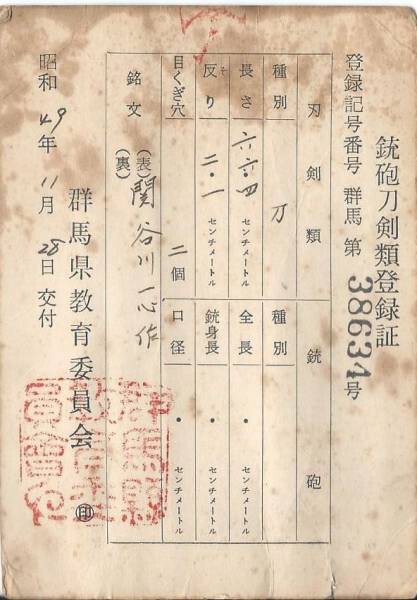 銃砲刀剣類登録証
登録記号番号 群馬 第38634号
刃剣類 銃砲
種別 刀 種別
長さ 六六・四 センチメートル 全長 ・ センチメートル
反り そ 二・一 センチメートル 銃身長 ・ センチメートル
目くぎ穴 二個 口径 ・ センチメートル
銘文 (表) 関谷川一心作
(裏)
昭和49年11月28日交付
群馬県教育委員会 印